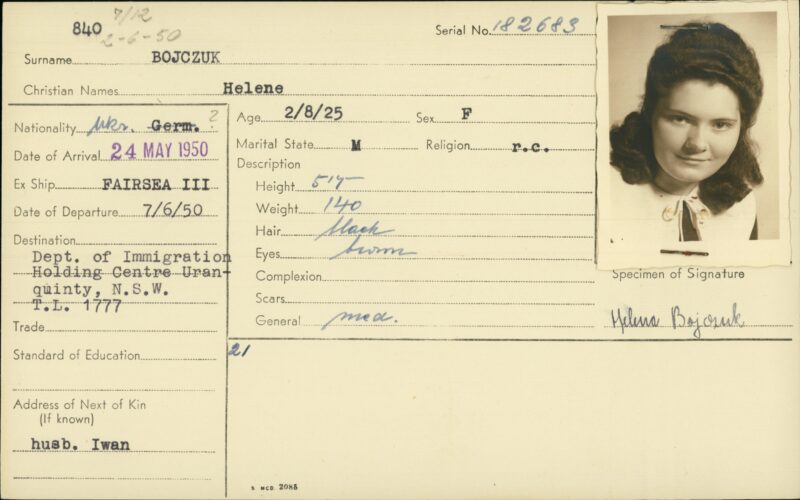 840 7/12
2-6-50
Serial No. 182683
Surname BOJCZUK
Christian Names Helene
Nationality Ukr. Germ. ?
Date of Arrival 24 MAY 1950
Ex Ship FAIRSEA III
Date of Departure 7/6/50
Destination
Dept. of Immigration
Holding Centre Uran-
quinty, N.S.W.
T.L. 1777
Trade
Standard of Education
Address of Next of Kin
(If known)
husb. Iwan
Age 2/8/25 Sex F
Marital State M Religion r.c.
Description
Height
Weight 140
Hair black
Eyes brown
Complexion
Scars
General med.
21
Specimen of Signature
Helena Bojczuk
S. MCD. 2085